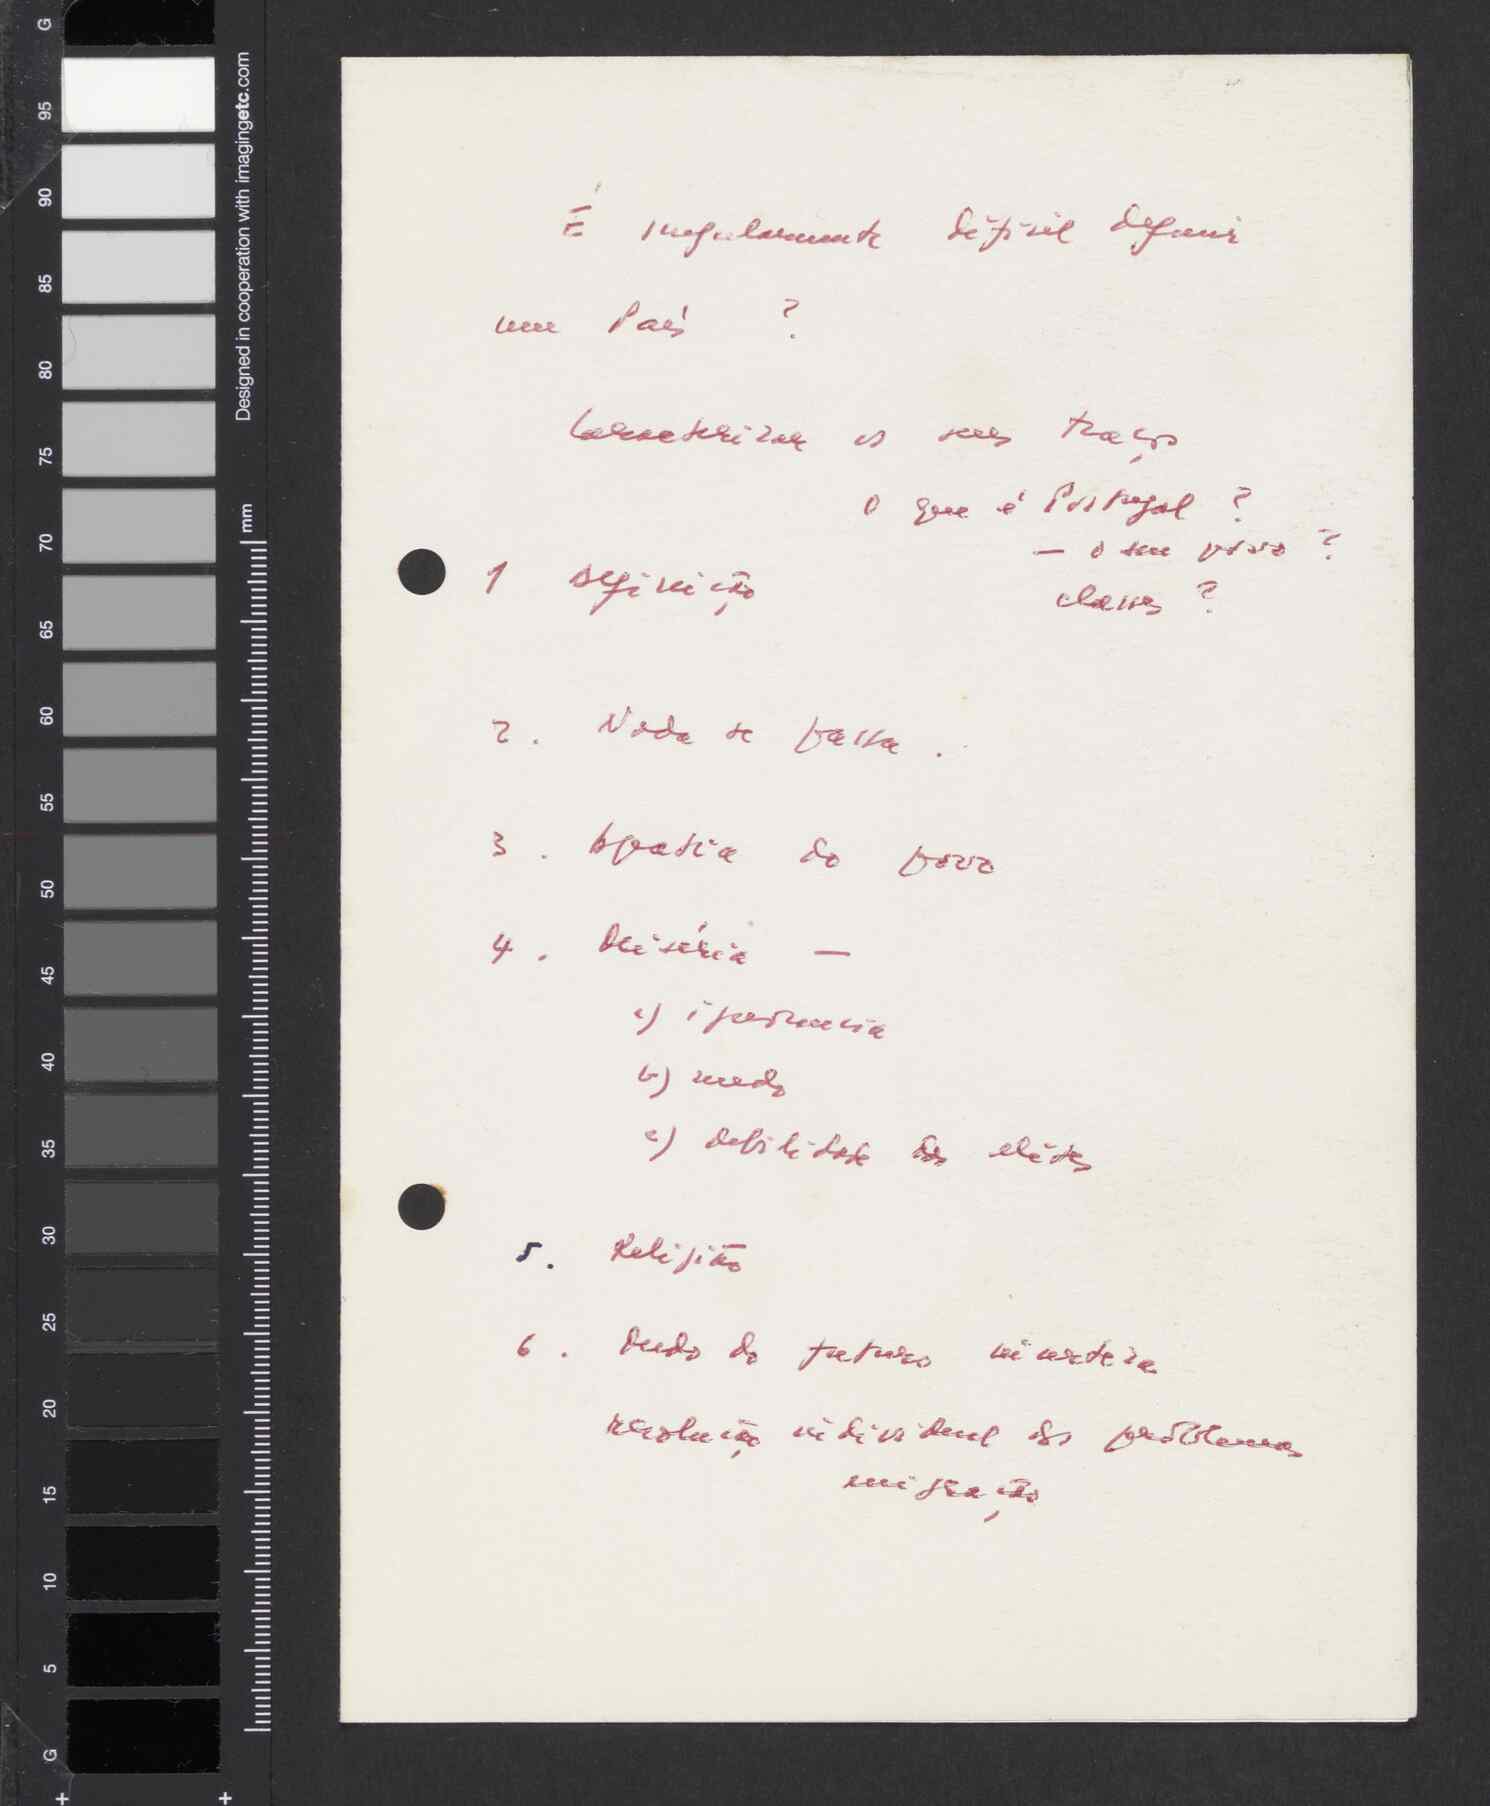 É singularmente difícil definir
um País ?
Caracterizar os seus traços
O que é Portugal ?
— o seu povo ?
1 definição
classes ?
2. Nada se passa.
3. Apatia do povo
4. Miséria —
a) ignorancia
b) medo
c) debilidade das elites
5. Religião
6. Medo do futuro incerteza
resolução individual dos problemas
emigração
G
95
90
85
80
75
70
65
60
55
50
45
40
35
30
25
20
15
10
5
G
Designed in cooperation with imagingetc.com
mm